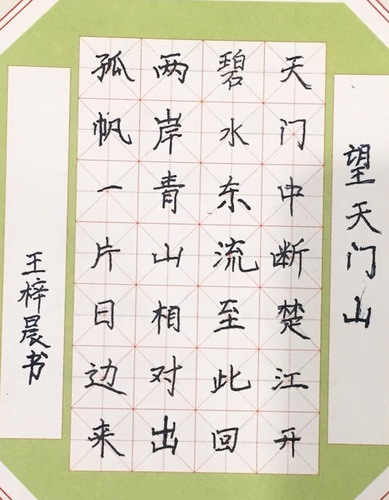 望天门山
天门中断楚江开
碧水东流至此回
两岸青山相对出
孤帆一片日边来
王梓晨书